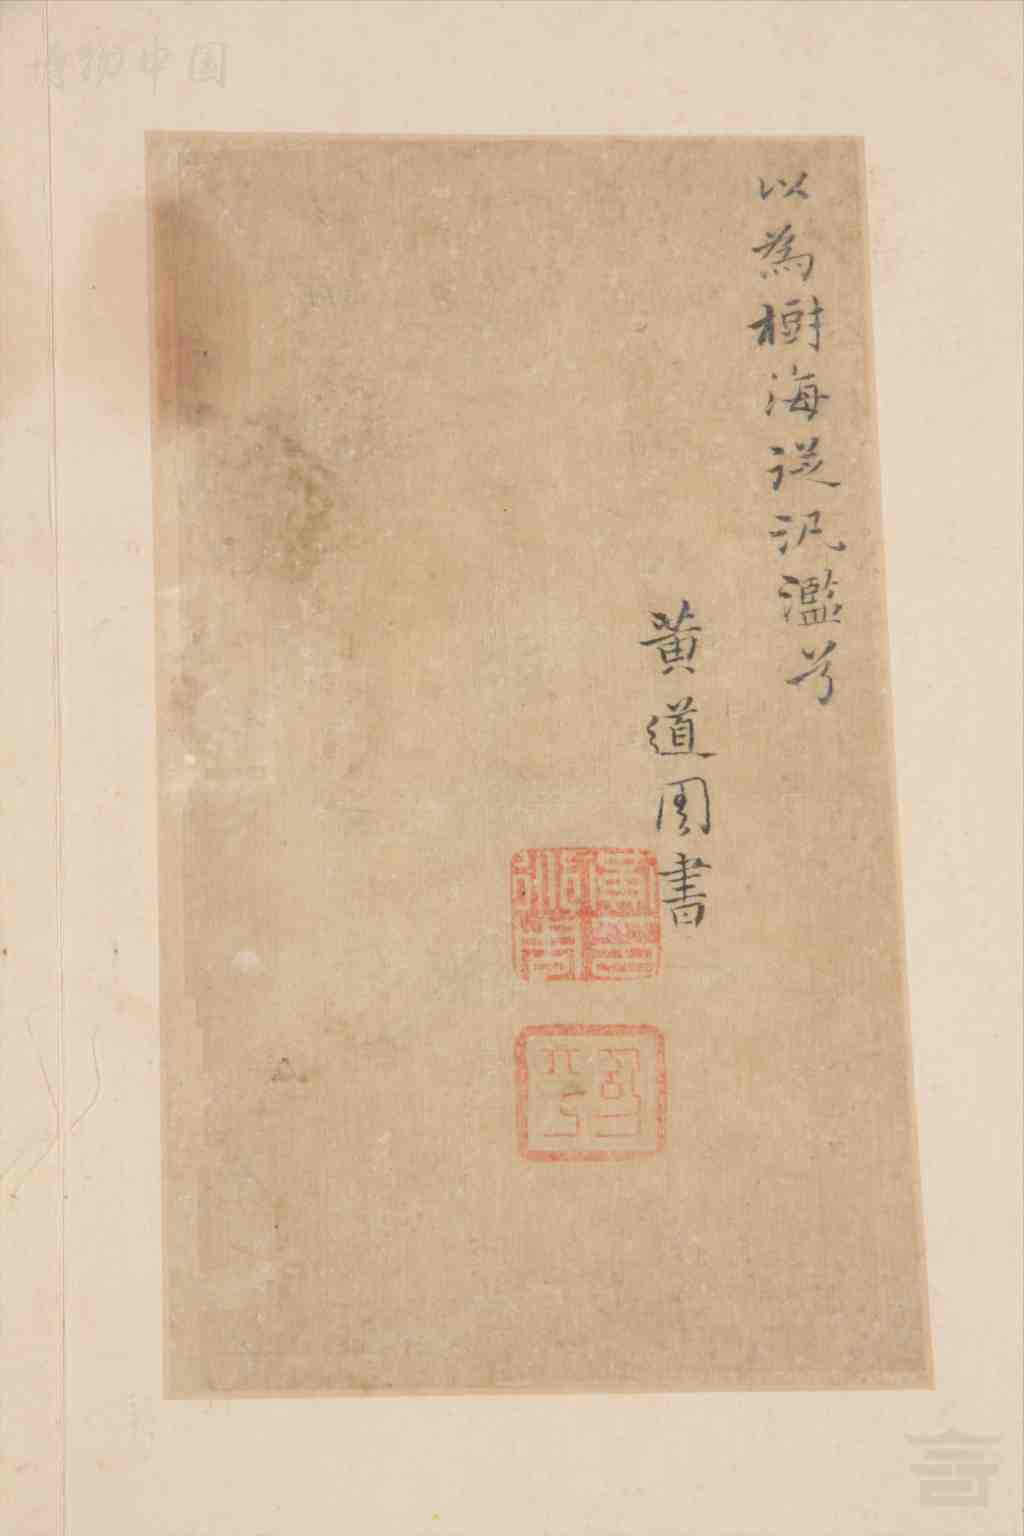 以為樹海從汎濫兮
黄道周書
博物中国